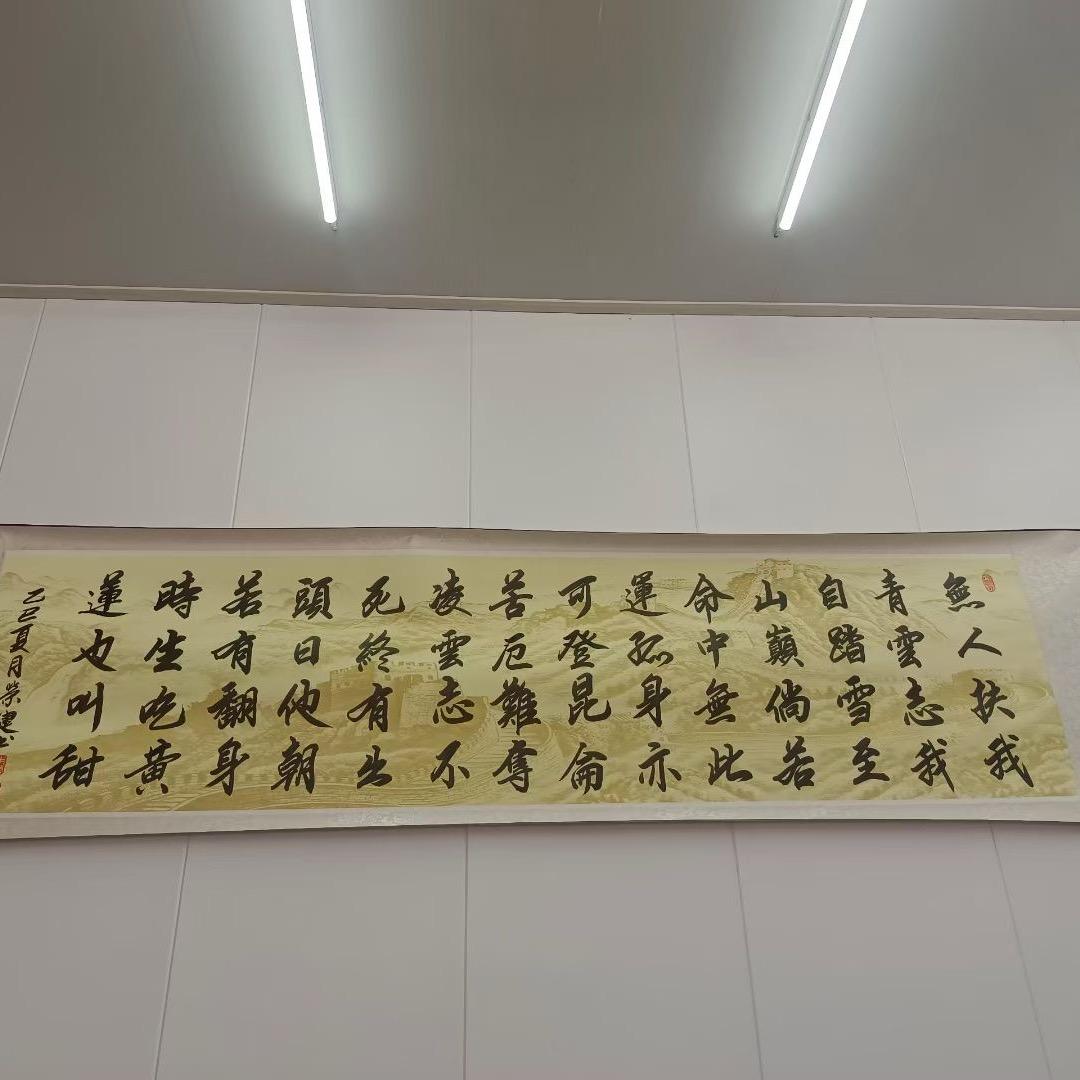 無人扶我
青雲志我
自踏雪至
山巔倘若
命中無此
運孤身亦
可登昆侖
苦厄難奪
凌雲志不
死終有出
頭日他朝
若有翻身
時生吃黃
蓮也叫甜
乙巳夏月榮